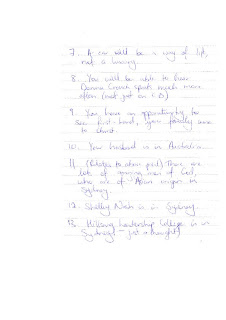 7. A car will be a way of life,
not a luxury.
8. You will be able to hear
Donna Crouch speak much more
often (not just on CD)
9. You have an opportunity to
see first-hand, your family come
to Christ.
10. Your husband is in Australia.
11. (Relates to above point) There are
lots of amazing men of God,
who are of Asian origin in
Sydney.
12. Shelley Nash is in Sydney
13. Hillsong Leadership College is in
Sydney - just a thought)